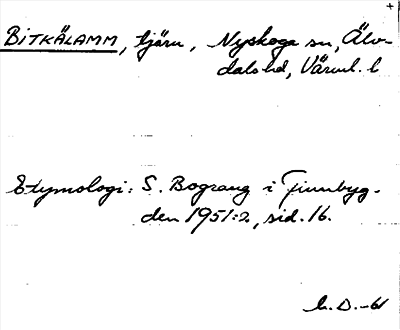 BITKÄLAMM, tjärn, Nyskoga sn, Älv-
dals hd, Värml. l
Etymologi: S. Bograng i Finnbyg-
den 1951:2, sid. 16.
L. D. -61